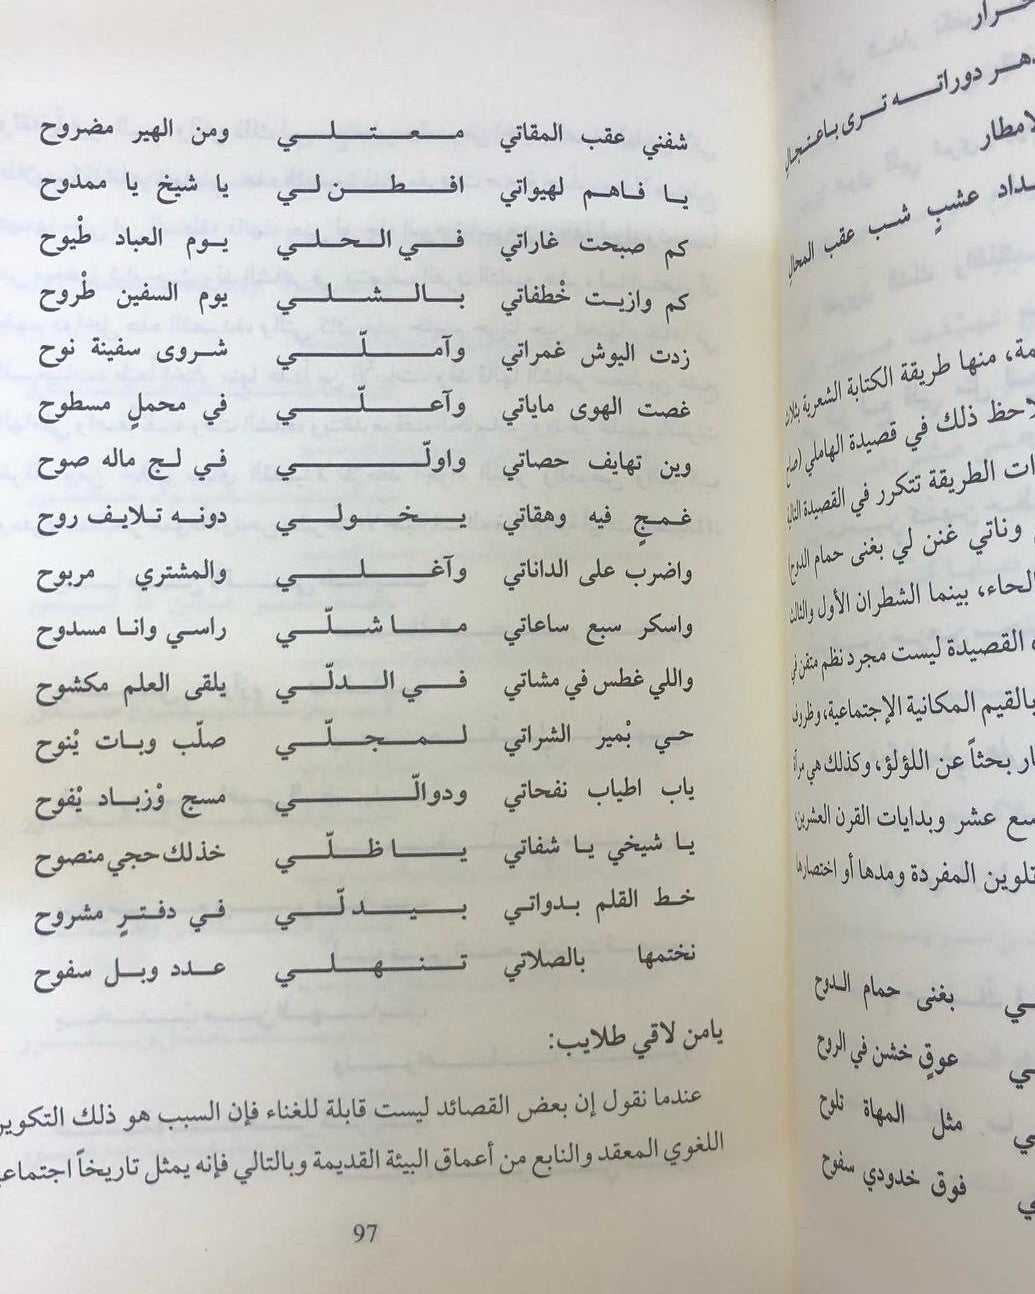 شفني عقب المقاتي معتلي ومن الهير مضروح
يا فاهم لهيواتي افطن لي يا شيخ يا ممدوح
كم صبحت غاراتي في الحلي يوم العباد طْيوح
كم وازيت خْطفاتي بالشلي يوم السفين طْروح
زدت اليوش غمراتي وآملّي شروى سفينة نوح
غصت الهوى ماياتي وآعلّي في محملٍ مسطوح
وين تهايف حصاتي واولّي في لج ماله صوح
غمجٍ فيه وهقاتي يخولي دونه تلايف روح
واضرب على الداناتي وآغلي والمشتري مربوح
واسكر سبع ساعاتي ما شلّي راسي وانا مسدوح
واللي غطس في مشاتي في الدلّي يلقى العلم مكشوح
حي بْمير الشراتي لمجلّي صلّب وبات يْنوح
ياب اطياب نفحاتي ودوالّي مسج وْزباد يْفوح
يا شيخي يا شفاتي يا ظلّي خذ لك حجي منصوح
خط القلم بدواتي بيدلّي في دفترٍ مشروح
نختمها بالصلاتي تنهلي عدد وبل سفوح
يامن لاقي طلايب:
عندما نقول إن بعض القصائد ليست قابلة للغناء فإن السبب هو ذلك التكوين
اللغوي المعقد والنابع من أعماق البيئة القديمة وبالتالي فإنه يمثل تاريخاً
97
دوراته ترى باعتجال
عشبٍ شب عقب المحال
منها طريقة الكتابة الشعرية
ذلك في قصيدة الهاملي
الطريقة تتكرر في القصيدة
وناتي غنن لي بغنى حمام الدوح
الحاء، بينما الشطران الأول والثالث
القصيدة ليست مجرد نظم متقن في
بالقيم المكانية الإجتماعية، وظروف
بحثاً عن اللؤلؤ، وكذلك هي مرآة
عشر وبدايات القرن العشرين
تلوين المفردة ومدها أو اختصارها
بغنى حمام الدوح
عوقٍ خشن في الروح
مثل المهاة تلوح
فوق خدودي سفوح